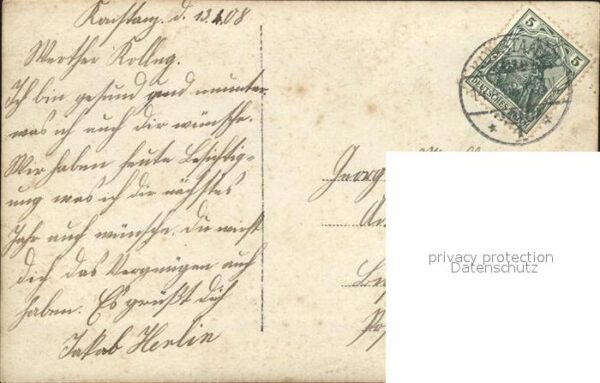 Konstanz. d. 13.4.08
Werther Kolleg.
Ich bin gesund und munter
was ich auch dir wünsche.
Wir haben heute Besichtig-
ung was ich dir nächstes
Jahr auch wünsche. du wirst
dich das Vergnügen auch
haben. Es grüßt dich
Jakob Herlin
5
5
DEUTSCHES REICH
Georg
privacy protection
Datenschutz